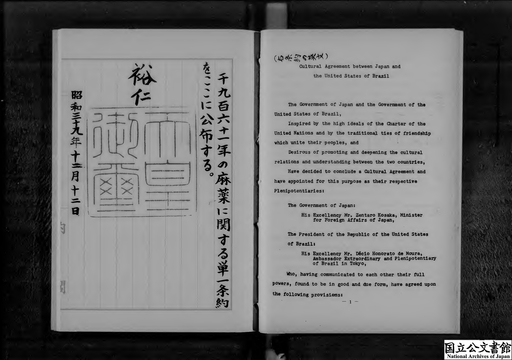 千九百六十一年の麻薬に関する単一条約
をここに公布する。
裕仁
天皇
御璽
昭和三十九年十二月十二日
(右条約の英文)
Cultural Agreement between Japan and
the United States of Brazil
The Government of Japan and the Government of the
United States of Brazil,
Inspired by the high ideals of the Charter of the
United Nations and by the traditional ties of friendship
which unite their peoples, and
Desirous of promoting and deepening the cultural
relations and understanding between the two countries,
Have decided to conclude a Cultural Agreement and
have appointed for this purpose as their respective
Plenipotentiaries:
The Government of Japan:
His Excellency Mr. Zentaro Kosaka, Minister
for Foreign Affairs of Japan,
The President of the Republic of the United States
of Brazil:
His Excellency Mr. Décio Honorato de Moura,
Ambassador Extraordinary and Plenipotentiary
of Brazil in Tokyo,
Who, having communicated to each other their full
powers, found to be in good and due form, have agreed upon
the following provisions:
- 1 -
国立公文書館
National Archives of Japan